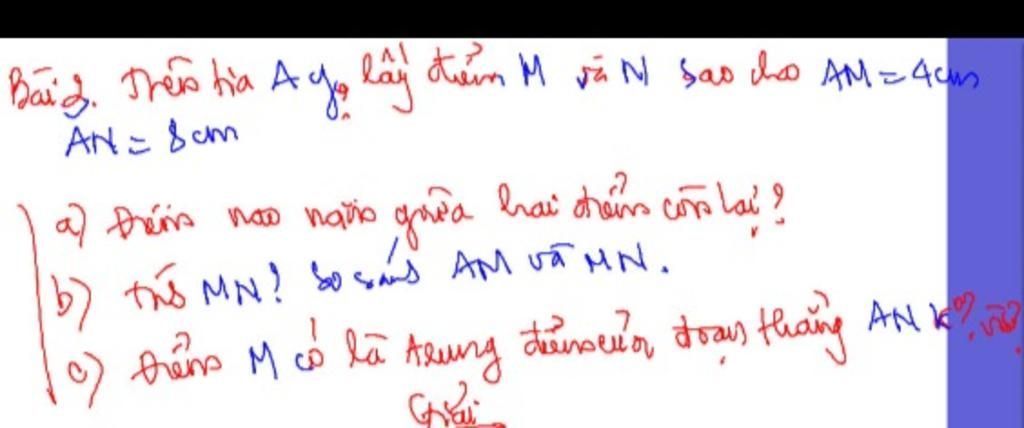 Bài 3. Trên tia Ay, lấy điểm M và N sao cho AM = 4cm
AN = 8cm
a) Điểm nào nằm giữa hai điểm còn lại?
b) Tính MN? So sánh AM và MN.
c) Điểm M có là trung điểm của đoạn thẳng AN k°? vì?
Giải